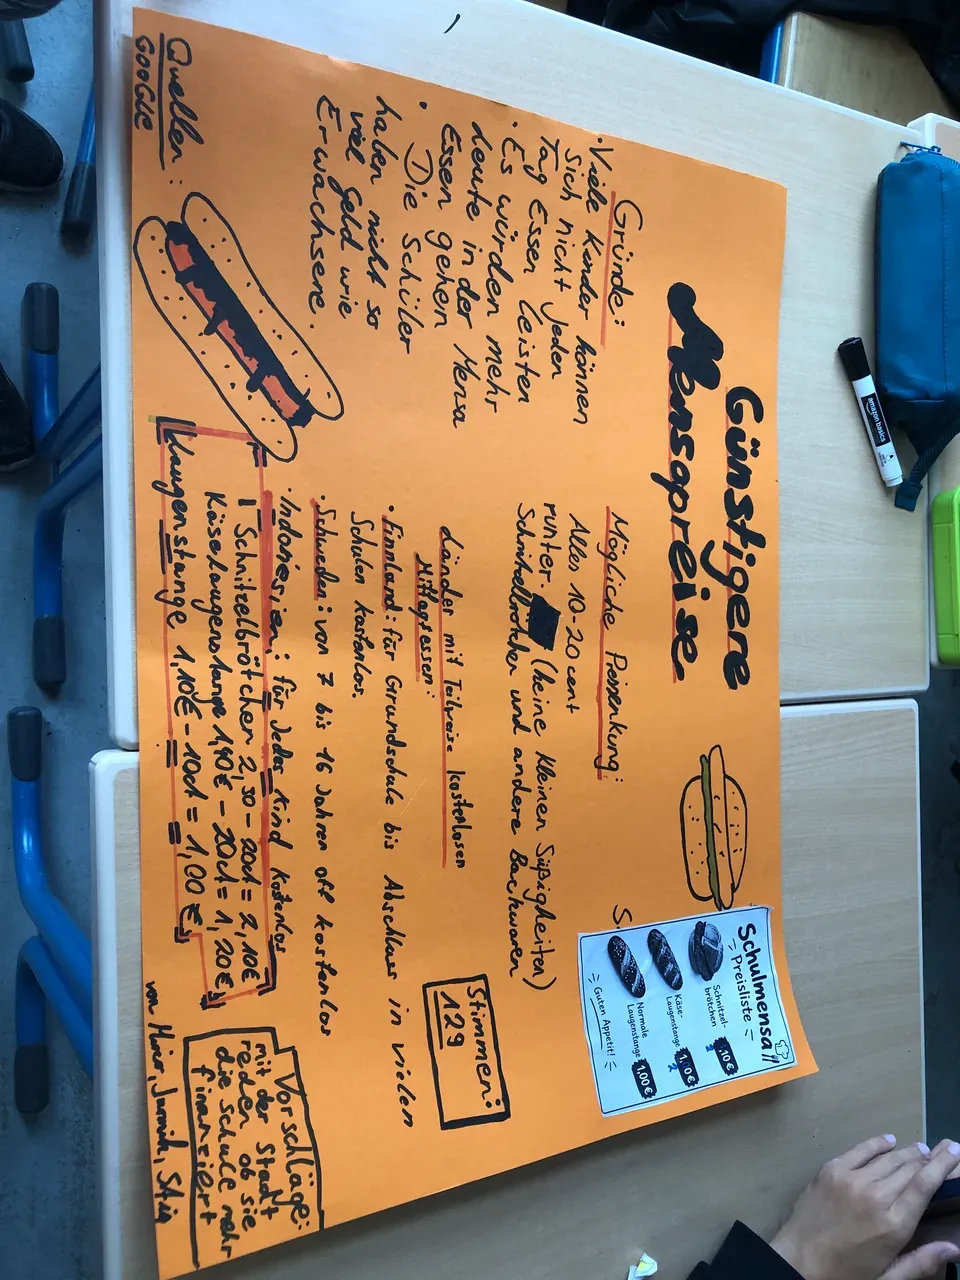 Günstigere
Mensapreise
Gründe:
• Viele Kinder können
sich nicht jeden
Tag Essen leisten
• Es würden mehr
Leute in der Mensa
Essen gehen
• Die Schüler
haben nicht so
viel Geld wie
Erwachsene.
Quellen:
GOOGLE
Mögliche Preissenkung:
Alles 10-20 cent
runter. (keine kleinen Süßigkeiten)
Schnitzelbrötchen und andere Backwaren
Länder mit Teilweise kostenlosen
Mittagsessen:
• Finnland: für Grundschule bis Abschluss in vielen
Schulen kostenlos.
• Schweden: von 7 bis 16 Jahren oft kostenlos
• Indonesien: für Jedes Kind kostenlos
1 Schnitzelbrötchen 2,30 - 20ct = 2,10€
Käselaugenstange 1,40€ - 20ct = 1,20€
Laugenstange 1,10€ - 10ct = 1,00€
Schulmensa!!
Preisliste
Schnitzel-
brötchen
2,10€
Käse-
Laugenstange
Normale
Laugenstange
1,00€
Guten Appetit!
Stimmen:
129
Vorschläge:
mit der Stadt
reden ob sie
die schule mehr
finanziert
von
amazon basics